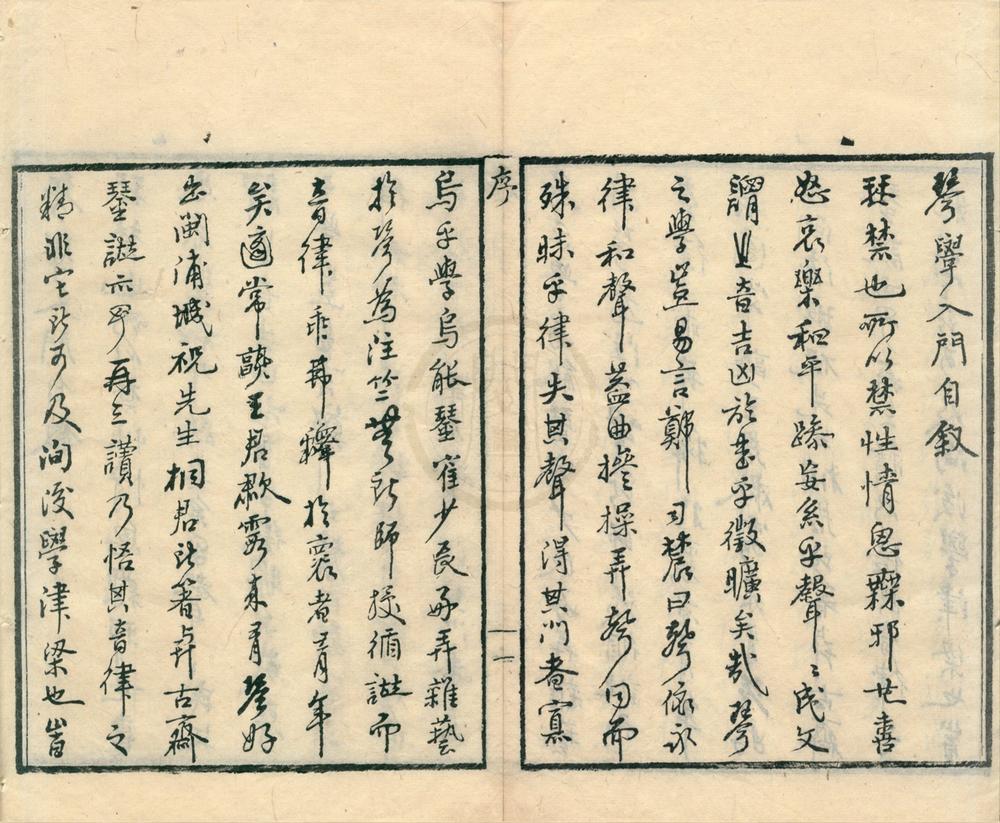 琴學入門自叙
琴禁也所以禁性情思無邪也喜
怒哀樂和平躁妄系乎聲聲成文
謂之音吉凶於垂乎徵曠矣哉琴
之學豈易言鄭司農曰琴依永
律和聲蓋曲摻操弄琴同而
殊昧乎律失其聲得其門者寡
序
一
烏乎學烏能琴雀少民好弄雜藝
於琴為注竺無所師授循譜而
音律乖舛繹於衷者有年
矣適常 王君 來有琴好
出閩浦城祝先生桐君所著与古齋
琴譜示予再三讀乃悟其音律之
精非它所可及洵後學津梁也